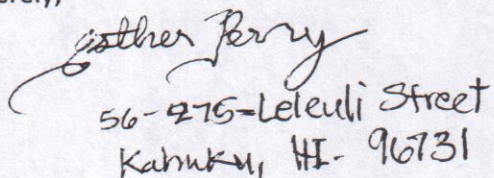 Esther Perry
56-275-Leleuli Street
Kahuku, HI- 96731